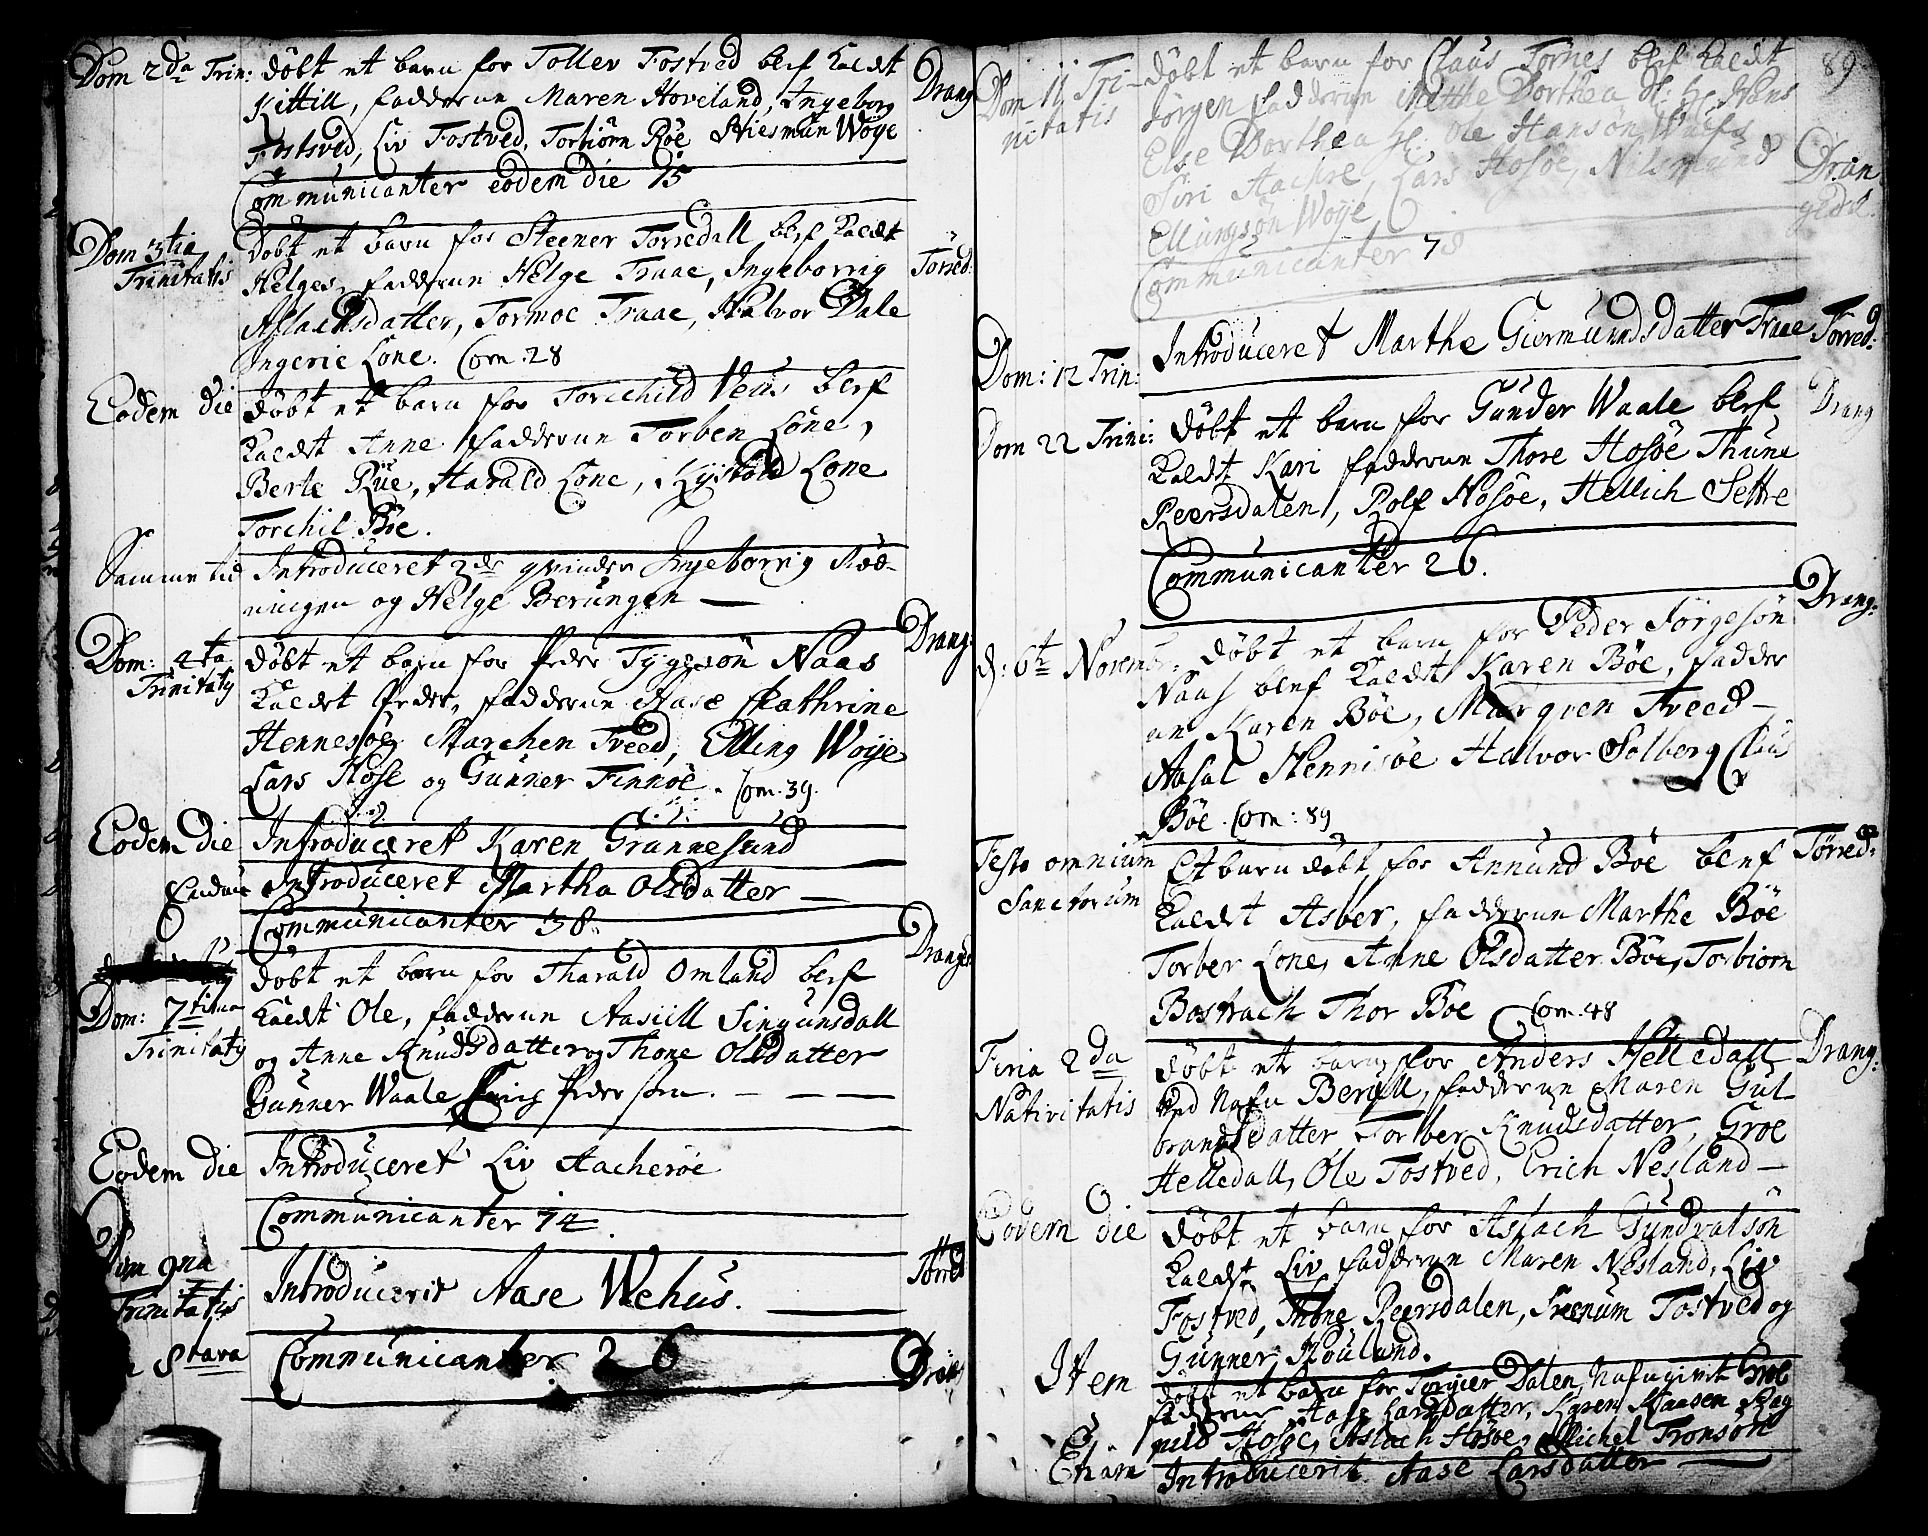 Dom 2da Trin: döbt et barn for Tollev Fostved blef kaldt Drang
Kittill, fadderne Maren Hoveland, Ingeborg
Fostved, Liv Fostved, Torbiörn Röe Hiesmun Woÿe
Communicanter eodem die 75
Dom 3tia Trinitatis
Döbt et barn for Steener Torredall blef kaldt
Helges, fadderne Helge Traae, Ingeborrig Törred:
Aslachsdatter, Tormoe Traae, Halvor Dale
Ingerie Lone. Com. 28
Eodem die döbt et barn for Torchild Veus blef
kaldt Anne fadderne Torben Löne,
Berte Rüe, Harald Lone, Kystöld Lone
Torchil Böe.
Samme tid Introduceret 2de qvinder Ingeborrig Röd-
ningen og Helge Berüngen —
Dom: 4ta Trinitaty
döbt et barn for Peder Tÿgesön Naas Drang:
kaldt Peder, fadderne Aase Kathrine
Hennesöe, Marchen Tveed, Elling Woÿe
Lars Höse og Gunner Finnöe. Com. 39.
Eodem Die Introdüceret Karen Grannesund
Introdüceret Martha Olsdatter —
Communicanter 38.
Dom: 7tima Trinitaty
döbt et barn for Tharald Omland blef Drang:
kaldt Ole, fadderne Aasüll Singunsdall
og Anne Knudsdatter og Thone Olsdatter
Günner Waale, Peder sön. — — —
Eodem die Introdüceret Liv Aacheröe
Communicanter 74.
Dom 9na Trinitatis
Introducerit Aase Wehüs. — Törred
8tava Communicanter 26 Drang

89
Dom 11 Tri-
nitatis
döbt et barn for Claus Tornes blef kaldt
Jörgen fadderne Mette Dorthea Hans
Else Dorthea Ole Hansön
Siri Aachre, Lars Hosöe, Nils Dran
Ellingsön Woÿe gedal
Communicanter 78
Dom: 12 Trin: Introduceret Marthe Giermundsdatter Traae Törred:
Dom 22 Trini: döbt et barn for Günder Waale blef Drang
kaldt Kari fadderne Thore Hosöe Thune
Reersdalen, Rolf Hosöe, Hellich Settre
Communicanter 26.
d: 6te Novemb. döbt et barn for Peder Jörgesön Drang:
Naas blef kaldt Karen Böe, fadder
ne Karen Böe, Margren Tveed —
Aasal Hennisöe Halvor Solberg Claus
Böe. Com: 89
Festo omnium Sanctorum
Et barn döbt for Annund Böe blef Törred:
kaldt Asber, fadderne Marthe Böe
Torber Lone, Anne Olsdatter Böe, Torbiörn
Bostrach Thor Böe Com. 48
Firia 2da Nativitatis
döbt et barn for Anders Helledall Drang:
ved Nafn Beruld, fadderne Maren Gul
brandsdatter Torber Knudsdatter, Groe
Helledall, Ole Tostved, Erich Nesland —
Eodem die döbt et barn for Aslach Gundvalsön
kaldt Liv, fadderne Maren Nesland, Liv
Fostved, Thone Reersdalen, Steenum Tostved og
Gunner Houland.
Item döbt et barn for Torgier Dalen, Nafn givet Groe
fadderne Aase Larsdatter, Karen Klausen Rag
nild Hosöe, Aslach Hosöe, Michel Tronsön
Etiam Introducerit Aase Larsdatter —